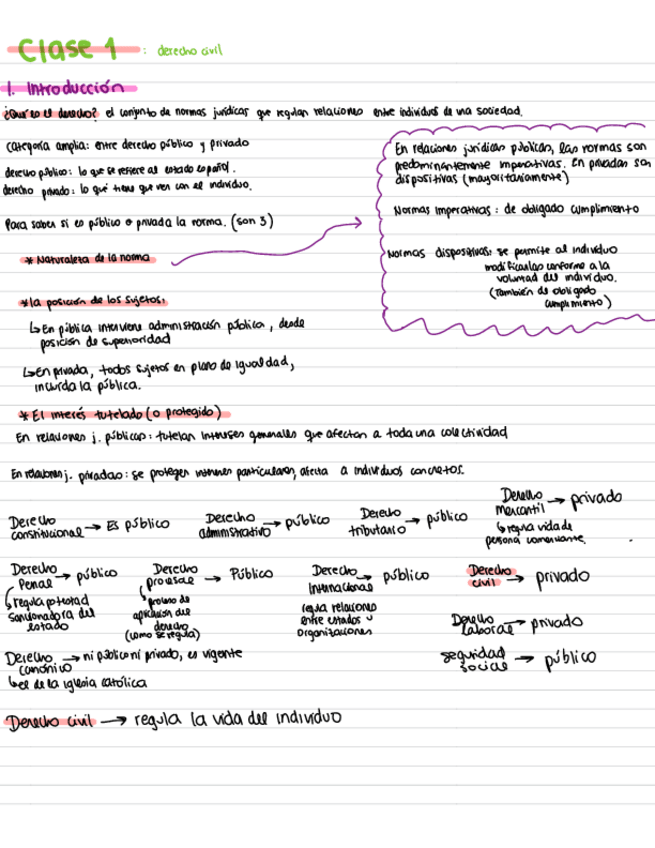 Clase 1 : derecho civil
1. Introducción
¿Qué es el derecho? el conjunto de normas jurídicas que regulan relaciones entre individuos de una sociedad.
Categoría amplia: entre derecho público y privado
derecho público: lo que se refiere al estado español.
derecho privado: lo que tiene que ver con el individuo.
Para saber si es público o privada la norma. (son 3)
* Naturaleza de la norma
En relaciones jurídicas públicas, las normas son
predominantemente imperativas. En privadas son
dispositivas (mayoritariamente)
Normas imperativas: de obligado cumplimiento
Normas dispositivas: se permite al individuo
modificarlas conforme a la
voluntad del individuo.
(También de obligado
cumplimiento)
* la posición de los sujetos:
↳ En pública interviene administración pública, desde
posición de superioridad
↳ En privada, todos sujetos en plano de igualdad,
incluida la pública.
* El interés tutelado (o protegido)
En relaciones j. públicas: tutelan intereses generales que afectan a toda una colectividad
En relaciones j. privadas: se protegen intereses particulares, afecta a individuos concretos.
Derecho constitucional → Es público
Derecho administrativo → público
Derecho tributario → público
Derecho mercantil → privado
↳ regula vida de
persona comerciante.
Derecho Penal → público
regula potestad
sancionadora del
estado
Derecho procesal → Público
proceso de
aplicación del
derecho
(como se regula)
Derecho Internacional → público
regula relaciones
entre estados u
organizaciones
Derecho civil → privado
Derecho laboral → privado
Derecho canónico → ni público ni privado, es vigente
↳ el de la iglesia católica
seguridad social → público
Derecho civil → regula la vida del individuo